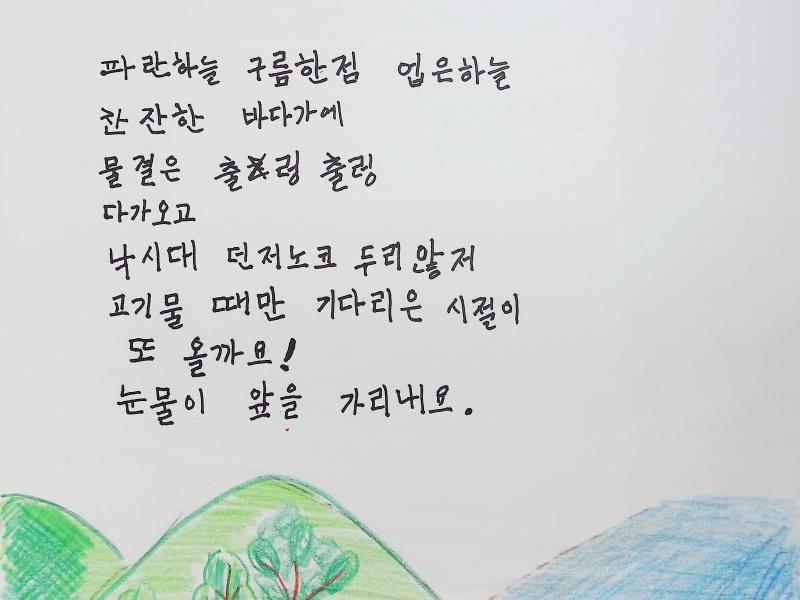 파란하늘 구름한점 업은하늘
잔잔한 바다가에
물결은 출렁 출렁
다가오고
낙시대 던저노코 두리앉저
고기물 때만 기다리은 시절이
또 올까요!
눈물이 앞을 가리내요.